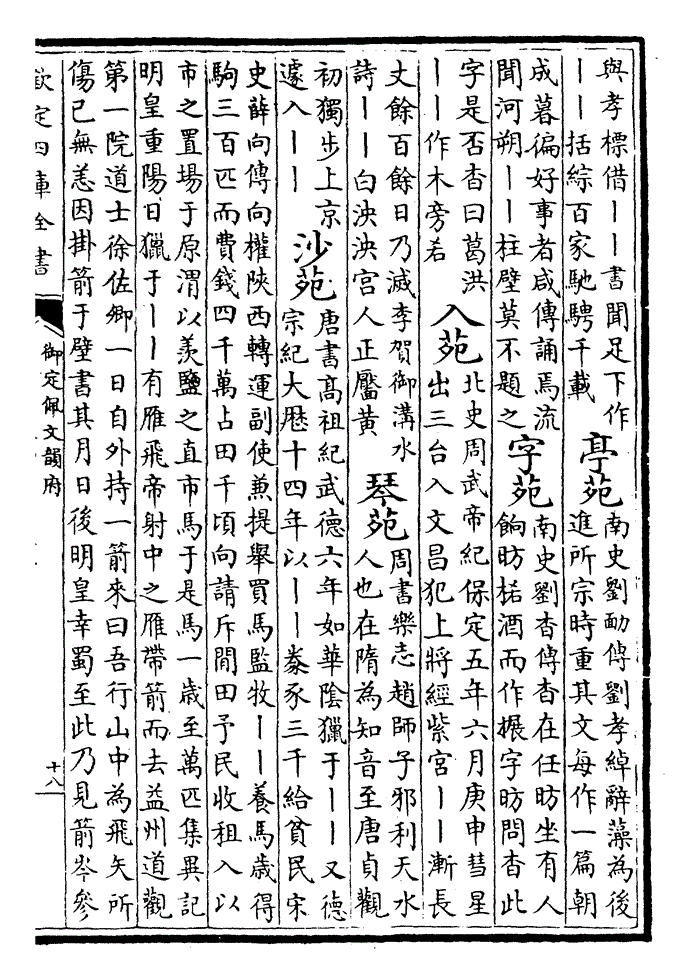 與孝標借丨丨書聞足下作
丨丨括綜百家馳騁千載
亭苑
南史劉勔傳劉孝綽辭藻為後
進所宗時重其文每作一篇朝
成暮徧好事者咸傳誦焉流
聞河朔丨丨柱壁莫不題之
字苑
南史劉杳傳杳在任昉坐有人
餉昉酒而作榐字昉問杳此
字是否杳曰葛洪
丨丨作木旁若
入苑
北史周武帝紀保定五年六月庚申彗星
出三台入文昌犯上將經紫宮丨丨漸長
丈餘百餘日乃滅李賀御溝水
詩丨丨白泱泱宮人正靨黃
琴苑
周書樂志趙師子邪利天水
人也在隋為知音至唐貞觀
初獨步上京
遽入丨丨丨
沙苑
唐書髙祖紀武德六年如華陰獵于丨丨又德
宗紀大厯十四年以丨丨豢豕三千給貧民宋
史薛向傳向權陜西轉運副使兼提舉買馬監牧丨丨養馬歲得
駒三百匹而費錢四千萬占田千頃向請斥閒田予民收租入以
市之置場于原渭以羨鹽之直市馬于是馬一歲至萬匹集異記
明皇重陽日獵于丨丨有雁飛帝射中之雁帶箭而去益州道觀
第一院道士徐佐卿一日自外持一箭來曰吾行山中為飛矢所
傷已無恙因掛箭于壁書其月日後明皇幸蜀至此乃見箭岑參
欽定四庫全書
御定佩文韻府
十八